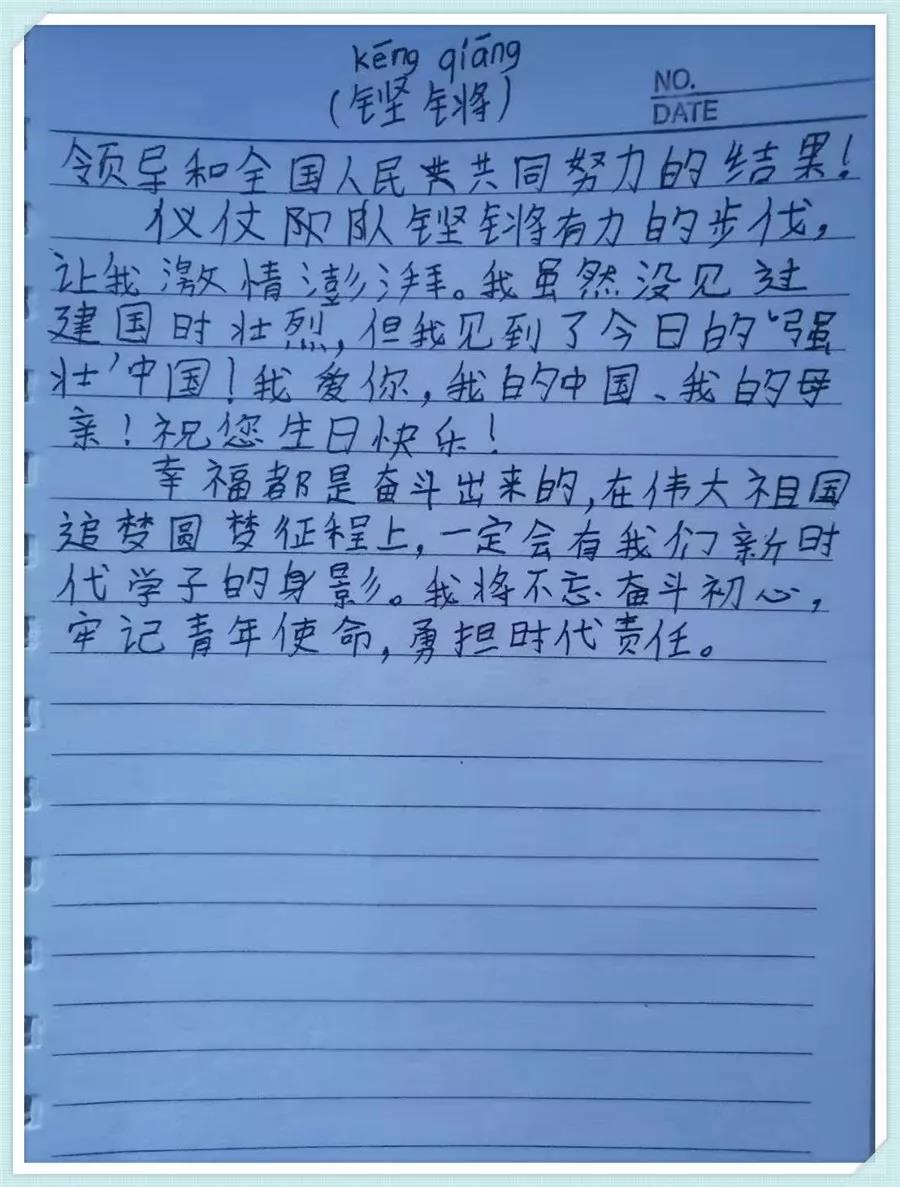 kēng qiāng
(铿锵)
NO.
DATE
领导和全国人民共共同努力的结果!
仪仗队铿锵有力的步伐,
让我激情澎湃。我虽然没见过
建国时壮烈,但我见到了今日的“强
壮’中国!我爱你,我的中国、我的母
亲!祝您生日快乐!
幸福都是奋斗出来的,在伟大祖国
追梦圆梦征程上,一定会有我们新时
代学子的身影。我将不忘奋斗初心,
牢记青年使命,勇担时代责任。